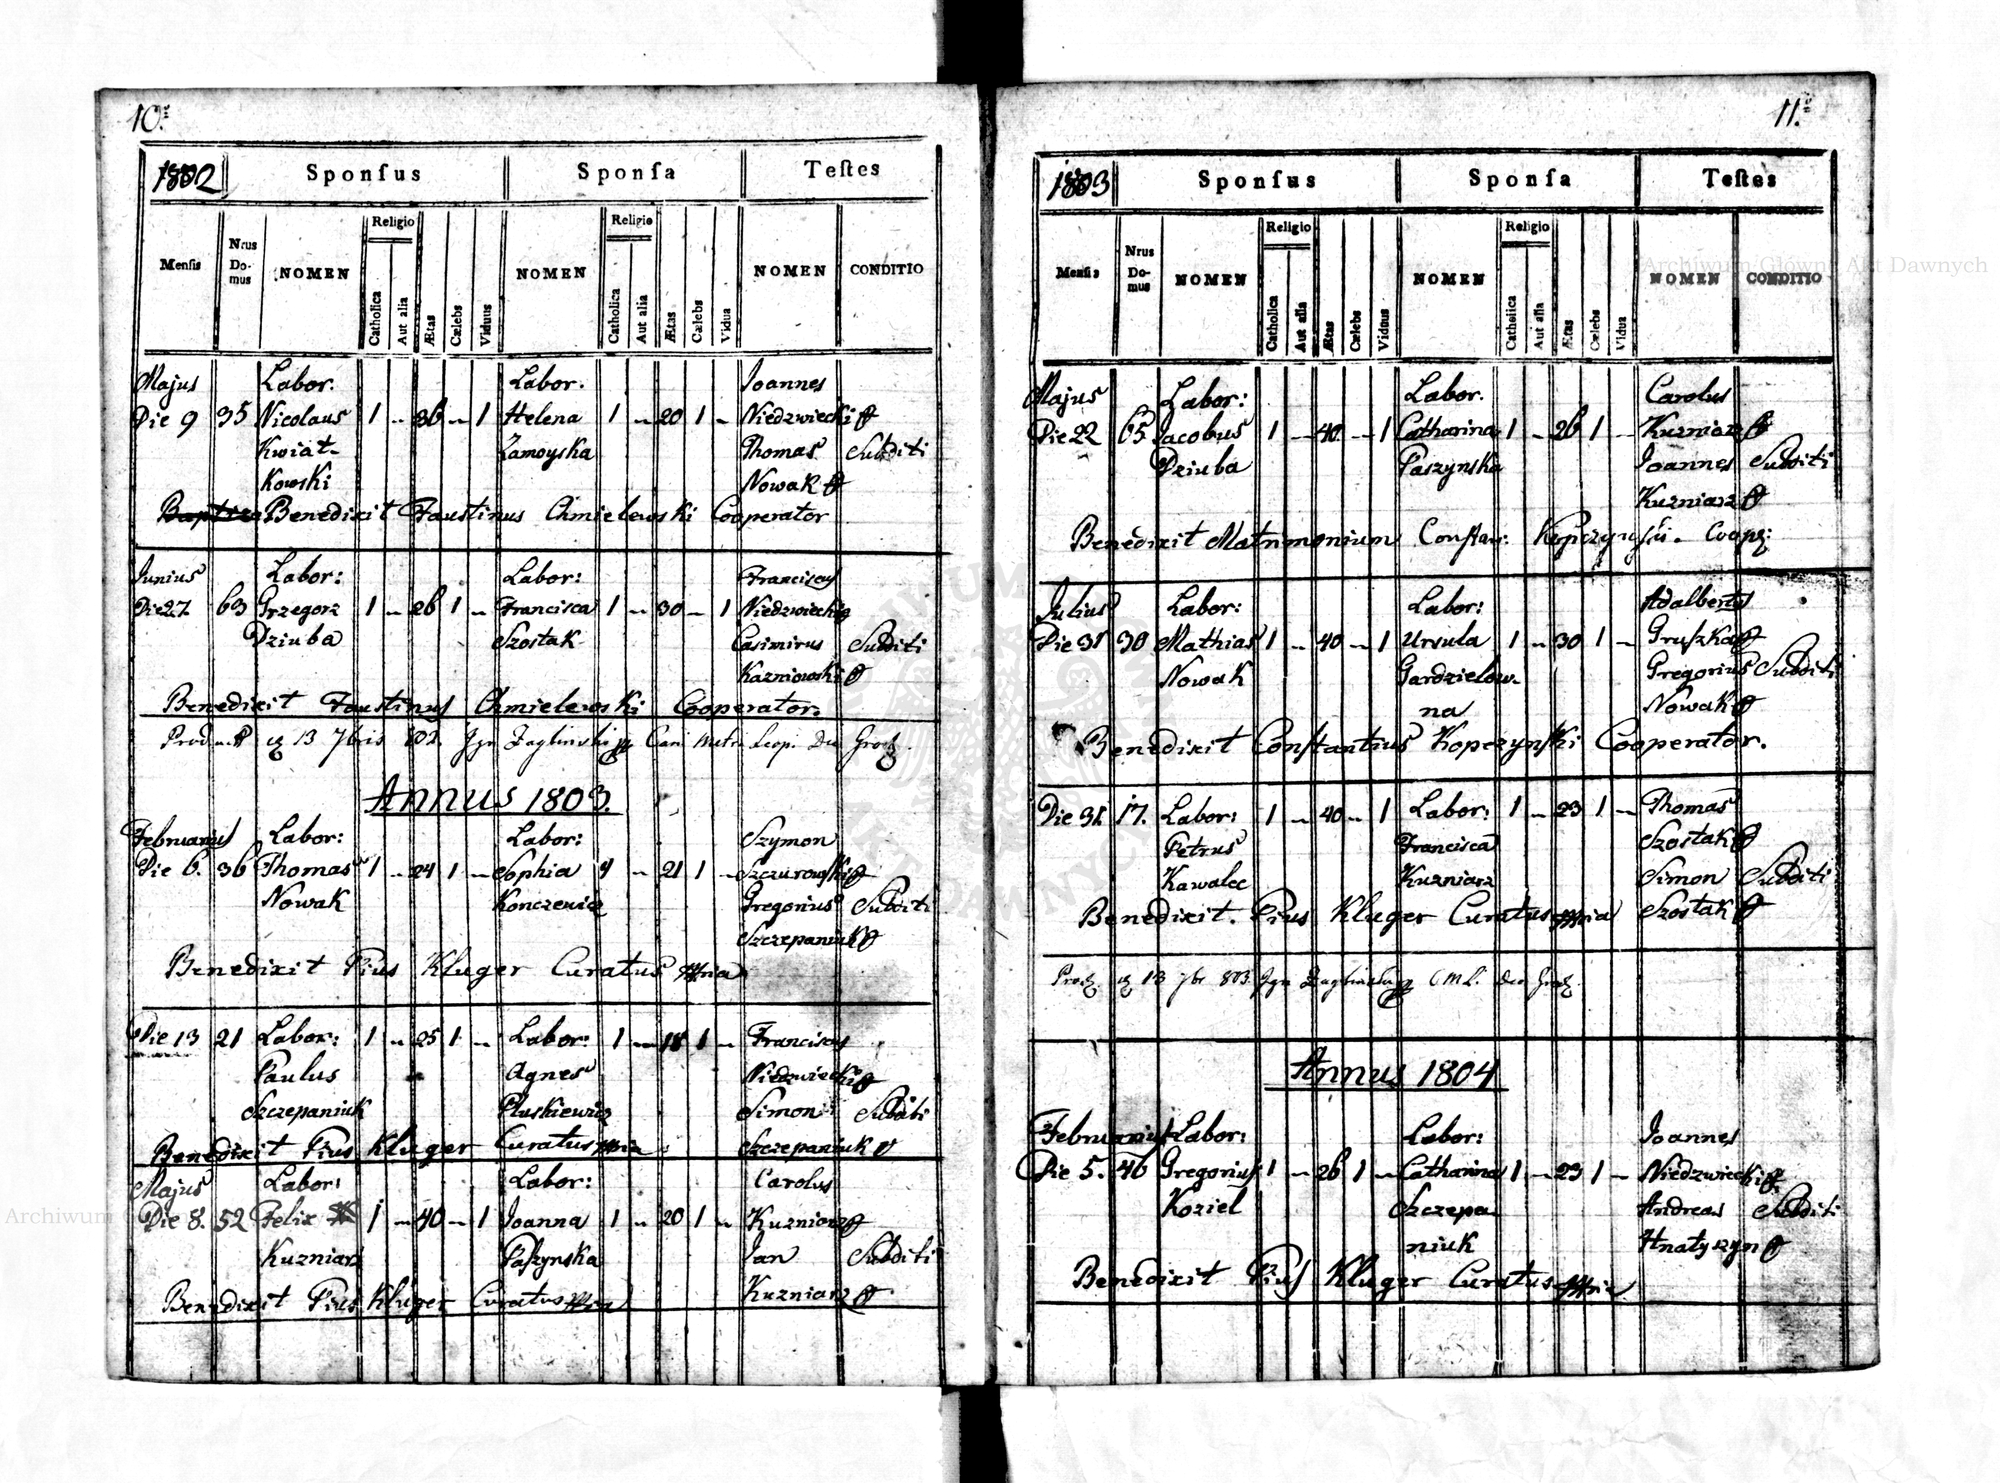 10.
1802 Sponsus Sponsa Testes
Mensis Nrus Do- mus NOMEN Religio Catholica Aut alia Ætas Cælebs Viduus NOMEN Religio Catholica Aut alia Ætas Cælebs Vidua NOMEN CONDITIO
Majus Labor: Labor. Joannes
Die 9 35 Nicolaus 1 - 36 - 1 Helena 1 - 20 1 - Niedzwiecki
Kwiat- Zamoyska Thomas Subditi
Kowski Nowak
Benedixit Faustinus Chmielewski Cooperator
Junius Labor: Labor: Franciscus
Die 27 63 Grzegorz 1 - 26 1 - Francisca 1 - 30 - 1 Niedzwiecki
Dziuba Szostak Casimirus Subditi
Kazniowski
Benedixit Faustinus Chmielewski Cooperator.
13 7bris 802.
Annus 1803.
Februarius Labor: Labor: Szymon
Die 6. 36 Thomas 1 - 24 1 - Sophia 1 - 21 1 - Szczurowski
Nowak Konczewicz Gregorius Subditi
Szczepaniuk
Benedixit Pius Kluger Curatus
Die 13 21 Labor: 1 - 25 1 - Labor: 1 - 18 1 - Franciscus
Paulus Agnes Niedzwiecki
Szczepaniuk Pluskiewicz Simon Subditi
Benedixit Pius Kluger Curatus Szczepaniuk
Majus Labor: Labor: Carolus
Die 8. 52 Felix 1 - 40 - 1 Joanna 1 - 20 1 - Kuzniarz
Kuzniarz Paszynska Jan Subditi
Benedixit Pius Kluger Curatus Kuzniarz
11.
1803 Sponsus Sponsa Testes
Mensis Nrus Do- mus NOMEN Religio Catholica Aut alia Ætas Cælebs Viduus NOMEN Religio Catholica Aut alia Ætas Cælebs Vidua NOMEN CONDITIO
Majus Labor: Labor. Carolus
Die 22 65 Jacobus 1 - 40 - 1 Catharina 1 - 26 1 - Kuzniarz
Dziuba Paszynska Joannes Subditi
Kuzniarz
Benedixit Matrimonium Constan: Kopczynski. Coop:
Julius Labor: Labor: Adalbertus
Die 31 30 Mathias 1 - 40 - 1 Ursula 1 - 30 1 - Gruszka
Nowak Gardzielow- Gregorius Subditi
na Nowak
Benedixit Constantius Kopczynski Cooperator.
Die 31. 17. Labor: 1 - 40 - 1 Labor: 1 - 23 1 - Thomas
Petrus Francisca Szostak
Kawalec Kuzniarz Simon Subditi
Benedixit. Pius Kluger Curatus Szostak
13 7br 803.
Annus 1804
Februarius Labor: Labor: Joannes
Die 5. 46 Gregorius 1 - 26 1 - Catharina 1 - 23 1 - Niedzwiecki
Koziel Szczepa Andreas Subditi
niuk Hnatyszyn
Benedixit Pius Kluger Curatus
Archiwum Główne Akt Dawnych